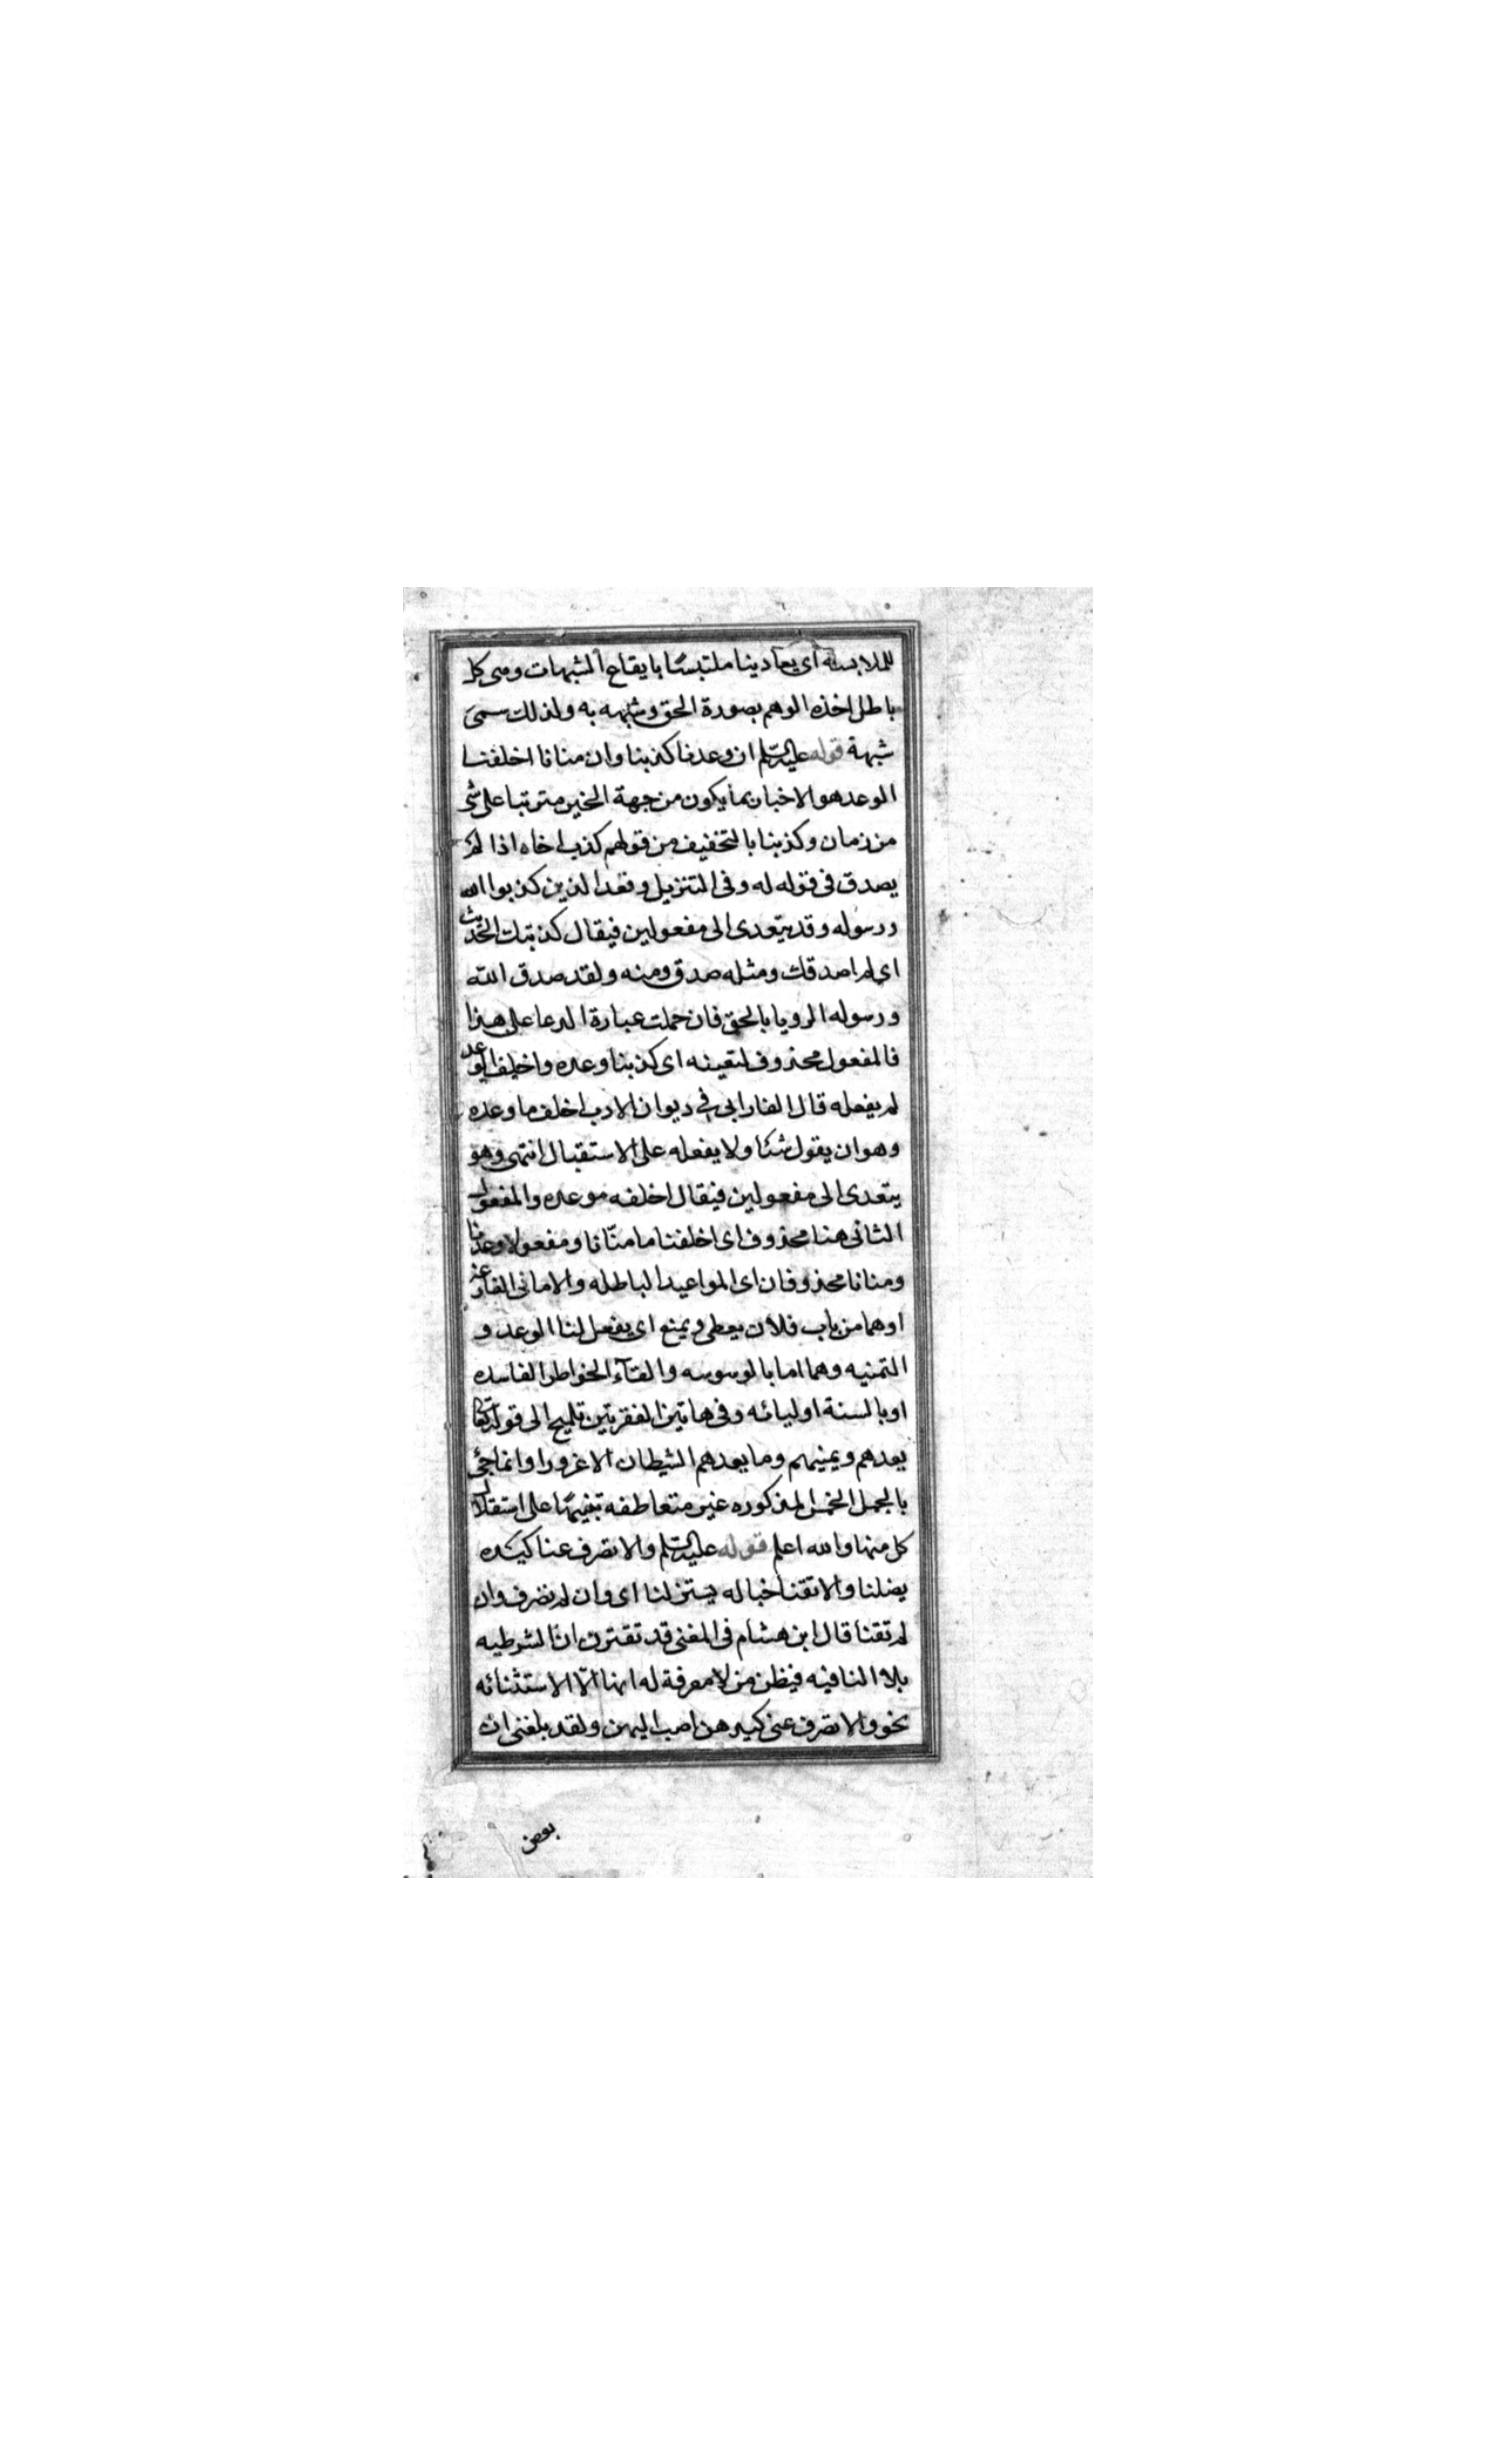 للملابسة اى يعادينا ملتبسًا بايقاع الشبهات وهى كل
باطل اخذه الوهم بصورة الحق وشبهه به ولذلك سمى
شبهة قوله عليه السّلم ان وعدنا كذبنا وان منانا اخلفنا
الوعد هو الاخبار بما يكون من جهة المخبر مترتبا على شى
من زمان وكذبنا بالتخفيف من قولهم كذب اخاه اذا لم
يصدق فى قوله له وفى التنزيل وقعد الذين كذبوا الله
ورسوله وقد يتعدى الى مفعولين فيقال كذبتك الحديث
اى لم اصدقك ومثله صدق ومنه ولقد صدق الله
ورسوله الرويا بالحق فان حملت عبارة الدعا على هذا
فالمفعول محذوف لتعينه اى كذبنا وعده واخلف الوعد
لم يفعله قال الفارابى فى ديوان الادب اخلف ما وعده
وهو ان يقول شئا ولا يفعله على الاستقبال انتهى وهو
يتعدى الى مفعولين فيقال اخلفه موعده والمفعول
الثانى هنا محذوف اى اخلفنا ما منّانا ومفعولا وعدنا
ومنانا محذوفان اى المواعيد الباطله والامانى الفارغه
او هما من باب فلان يعطى ويمنع اى يفعل لنا الوعد و
التمنيه وهما اما بالوسوسه والقآء الخواطر الفاسده
او بالسنة اوليائه وفى هاتين الفقرتين تلميح الى قوله تعا
يعدهم ويمنيهم وما يعدهم الشيطان الا غرورا وانما جئ
بالجمل الخمس المذكوره غير متعاطفه تنبيهًا على استقلال
كل منها والله اعلم قوله عليه السّلم والا تصرف عنا كيده
يضلنا والا تقنا خباله يستزلنا اى وان لم تصرف وان
لم تقنا قال ابن هشام فى المغنى قد تقترن ان الشرطيه
بلا النافيه فيظن من لا معرفة له انها الّا الاستثنائه
نحو والا تصرف عنى كيدهن اصب اليهن ولقد بلغنى ان
بعض